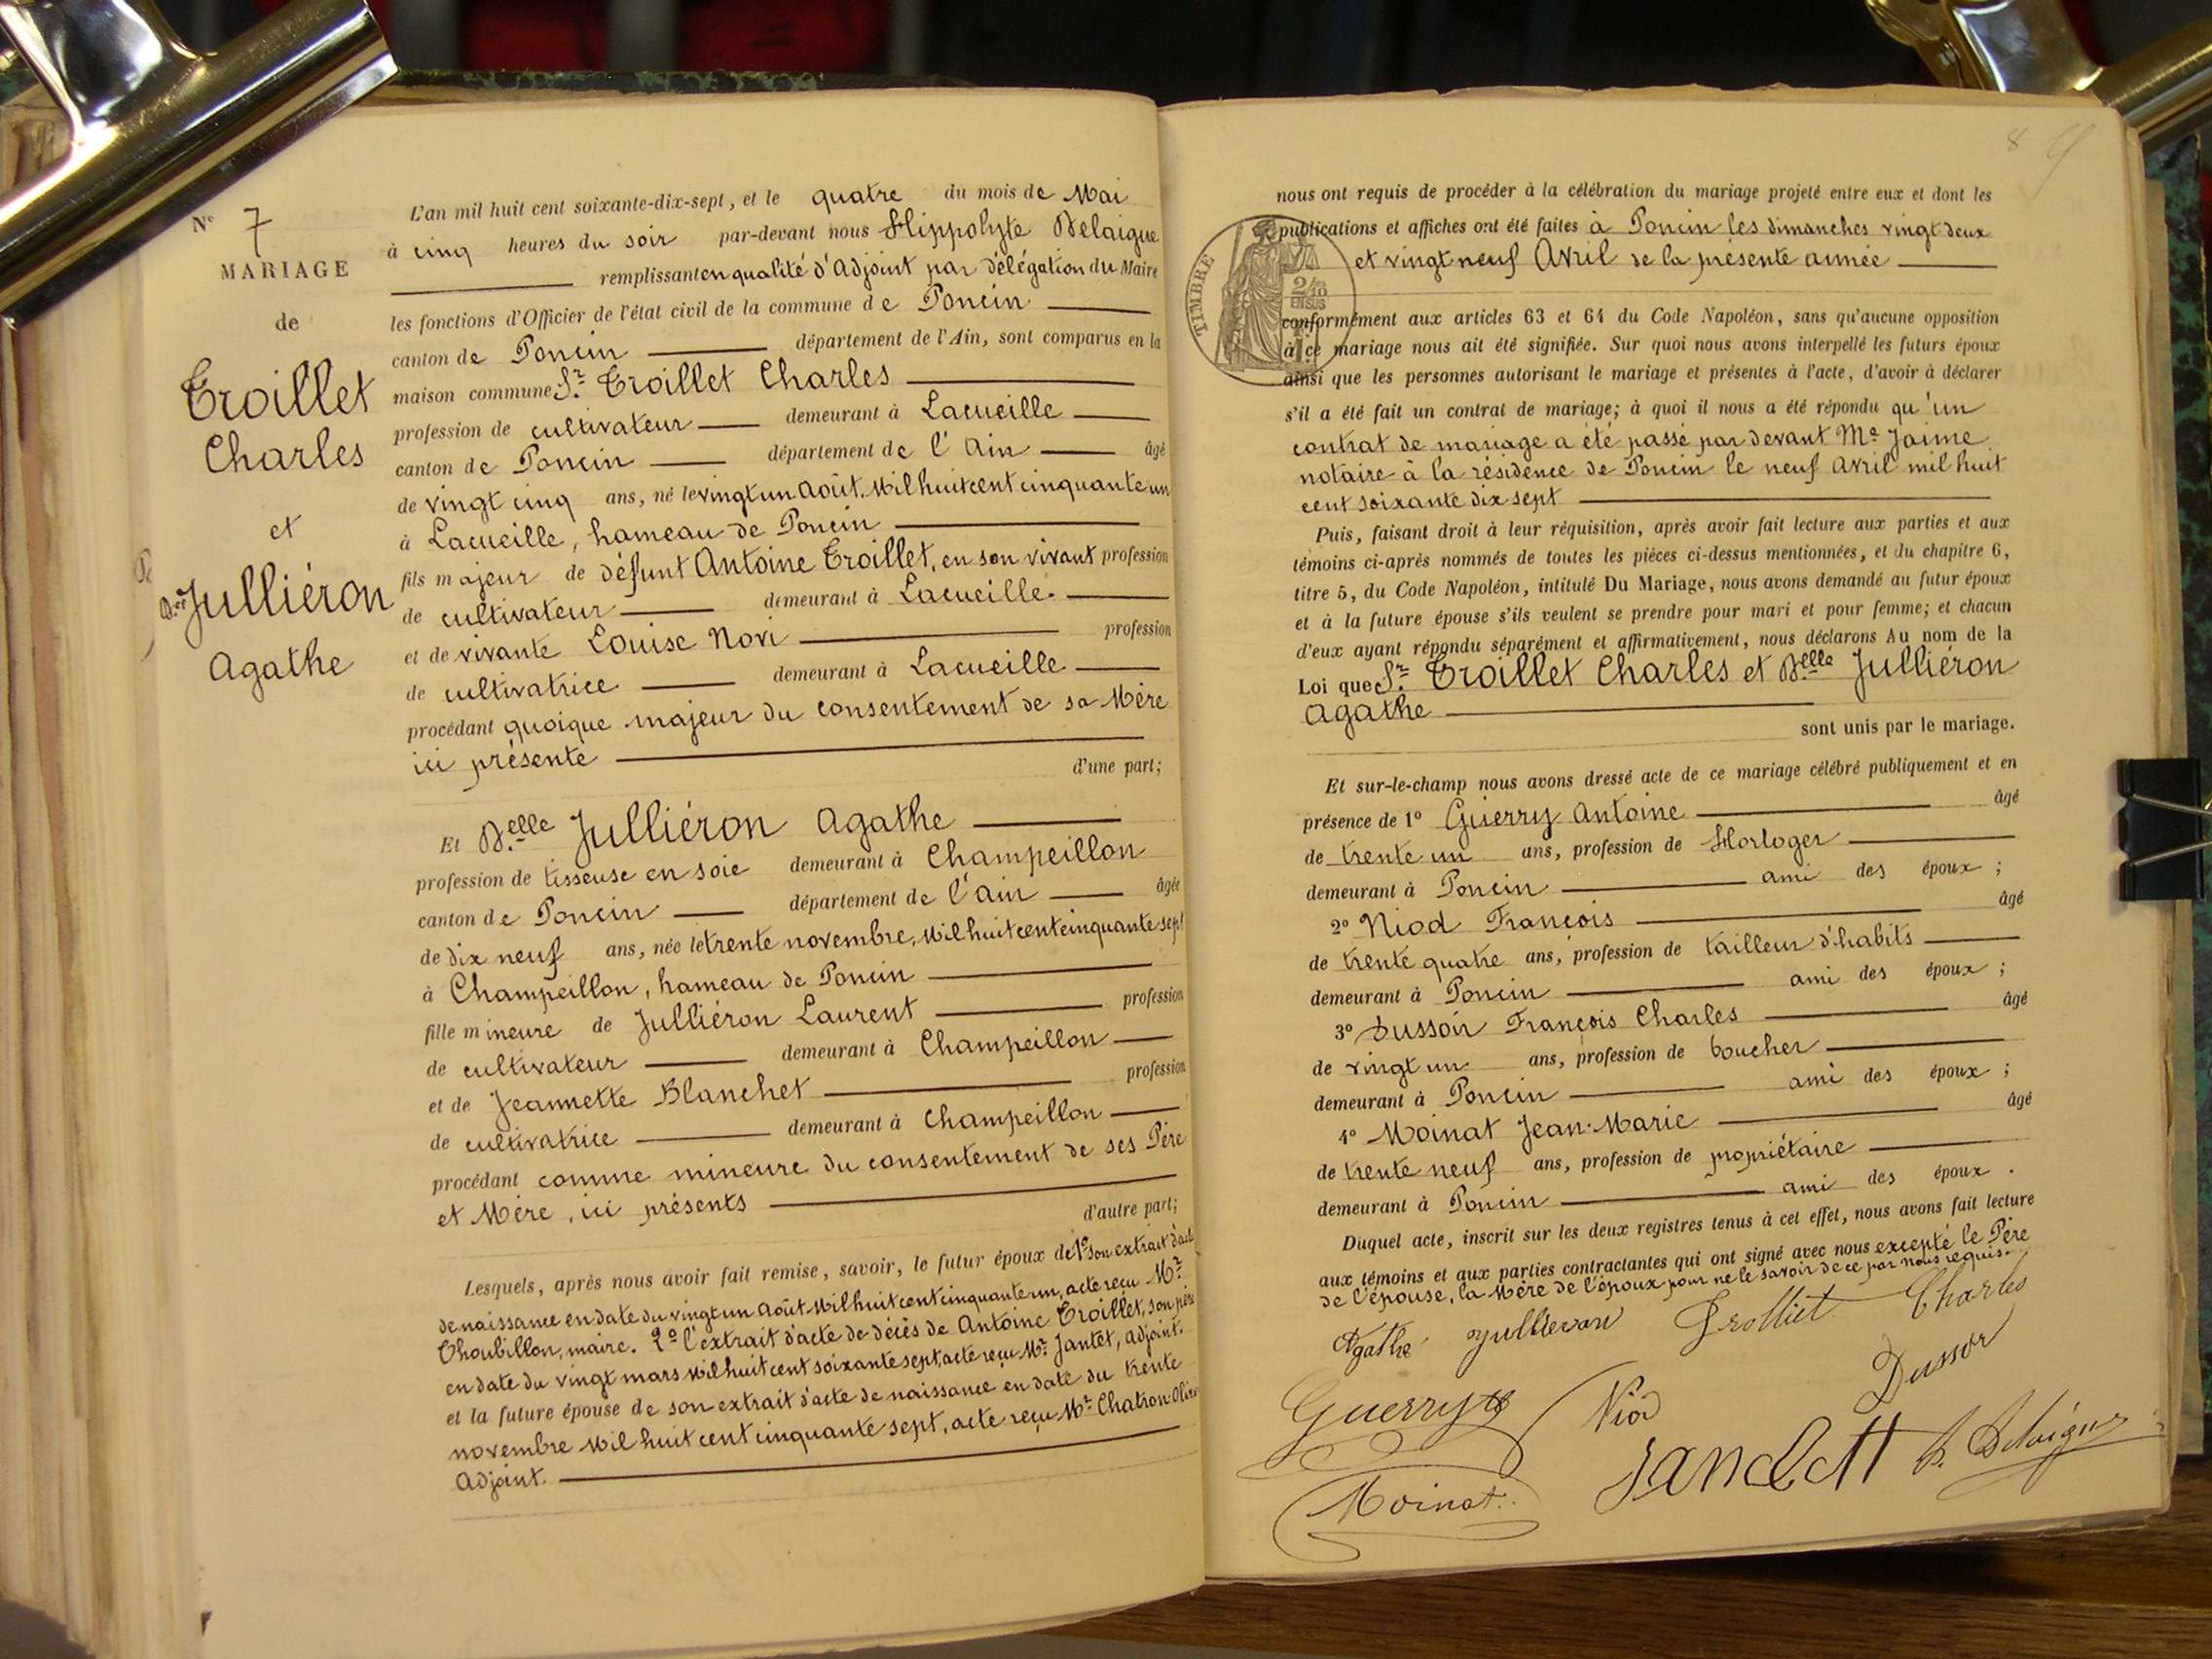 N° 7
MARIAGE
de
Troillet
Charles
et
Dlle Julliéron
Agathe
L'an mil huit cent soixante-dix-sept, et le quatre du mois de Mai
à cinq heures du soir par-devant nous Hippolyte Delaigue
remplissant en qualité d'Adjoint par délégation du Maire
les fonctions d'Officier de l'état civil de la commune de Poncin
canton de Poncin département de l'Ain, sont comparus en la
maison commune Sr. Troillet Charles
profession de cultivateur demeurant à Lacueille
canton de Poncin département de l'Ain âgé
de vingt cinq ans, né le vingt un Août, Mil huit cent cinquante un
à Lacueille, hameau de Poncin
fils majeur de défunt Antoine Troillet, en son vivant profession
de cultivateur demeurant à Lacueille.
et de vivante Louise Novi profession
de cultivatrice demeurant à Lacueille
procédant quoique majeur du consentement de sa Mère
ici présente
d'une part;
Et Delle Julliéron Agathe
profession de tisseuse en soie demeurant à Champeillon
canton de Poncin département de l'Ain âgée
de dix neuf ans, née le trente novembre, Mil huit cent cinquante sept
à Champeillon, hameau de Poncin
fille mineure de Julliéron Laurent profession
de cultivateur demeurant à Champeillon
et de Jeannette Blanchet profession
de cultivatrice demeurant à Champeillon
procédant comme mineure du consentement de ses Père
et Mère, ici présents
d'autre part;
Lesquels, après nous avoir fait remise, savoir, le futur époux de 1° son extrait d'acte
de naissance en date du vingt un Août Mil huit cent cinquante un, acte reçu Mr.
Thoubillon, maire. 2° l'extrait d'acte de décès de Antoine Troillet, son père
en date du vingt mars Mil huit cent soixante sept, acte reçu Mr. Jantet, adjoint.
et la future épouse de son extrait d'acte de naissance en date du trente
novembre Mil huit cent cinquante sept, acte reçu Mr. Chatron
Adjoint.
8 9
nous ont requis de procéder à la célébration du mariage projeté entre eux et dont les
publications et affiches ont été faites à Poncin les dimanches vingt deux
et vingt neuf Avril de la présente année
TIMBRE
2/10
EN SUS
conformément aux articles 63 et 64 du Code Napoléon, sans qu'aucune opposition
à ce mariage nous ait été signifiée. Sur quoi nous avons interpellé les futurs époux
ainsi que les personnes autorisant le mariage et présentes à l'acte, d'avoir à déclarer
s'il a été fait un contrat de mariage; à quoi il nous a été répondu qu'un
contrat de mariage a été passé par devant Me Jaime
notaire à la résidence de Poncin le neuf Avril mil huit
cent soixante dix sept
Puis, faisant droit à leur réquisition, après avoir fait lecture aux parties et aux
témoins ci-après nommés de toutes les pièces ci-dessus mentionnées, et du chapitre 6,
titre 5, du Code Napoléon, intitulé Du Mariage, nous avons demandé au futur époux
et à la future épouse s'ils veulent se prendre pour mari et pour femme; et chacun
d'eux ayant répondu séparément et affirmativement, nous déclarons Au nom de la
Loi que Sr. Troillet Charles et Delle Julliéron
Agathe
sont unis par le mariage.
Et sur-le-champ nous avons dressé acte de ce mariage célébré publiquement et en
présence de 1° Guerry Antoine âgé
de trente un ans, profession de Horloger
demeurant à Poncin ami des époux ;
2° Niod François âgé
de trente quatre ans, profession de tailleur d'habits
demeurant à Poncin ami des époux ;
3° Dussoir François Charles âgé
de vingt un ans, profession de boucher
demeurant à Poncin ami des époux ;
4° Moinat Jean-Marie âgé
de trente neuf ans, profession de propriétaire
demeurant à Poncin ami des époux .
Duquel acte, inscrit sur les deux registres tenus à cet effet, nous avons fait lecture
aux témoins et aux parties contractantes qui ont signé avec nous excepté le Père
de l'épouse, la Mère de l'époux pour ne le savoir de ce par nous requis.
Agathe Jullieron Trolliet Charles
Guerry Niod Dussor
Moinat. H. Delaigue